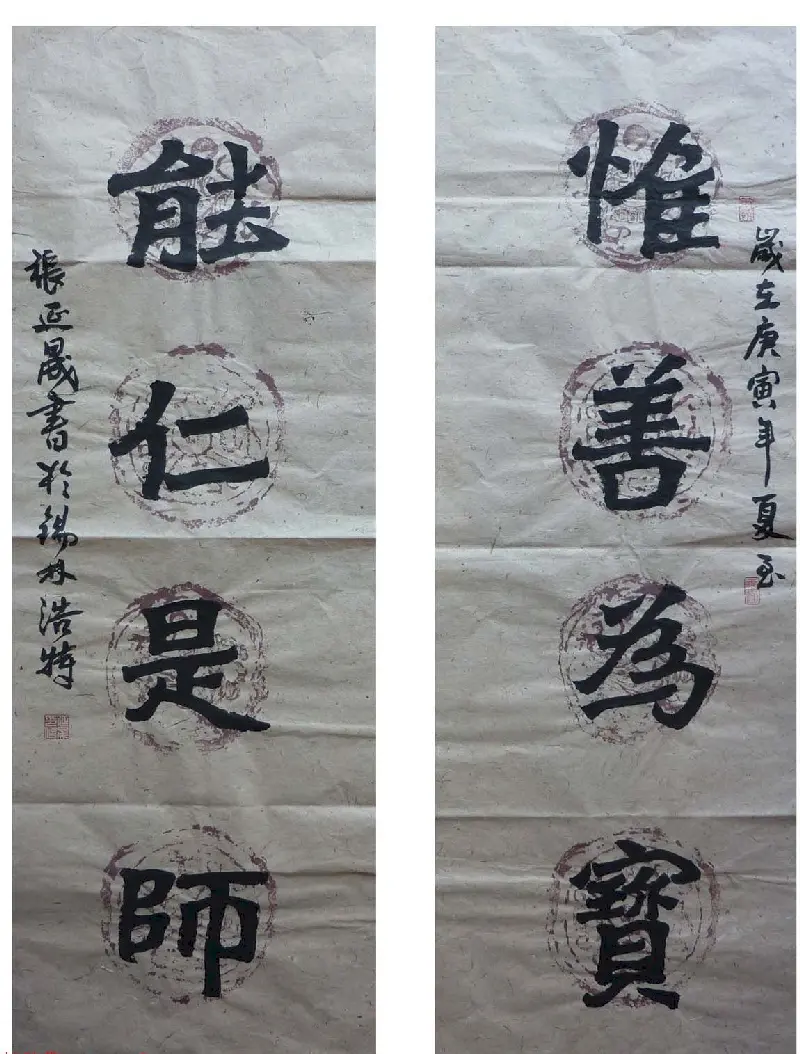 歲在庚寅年夏至
惟善為寶
能仁是師
張延晟書於錫林浩特